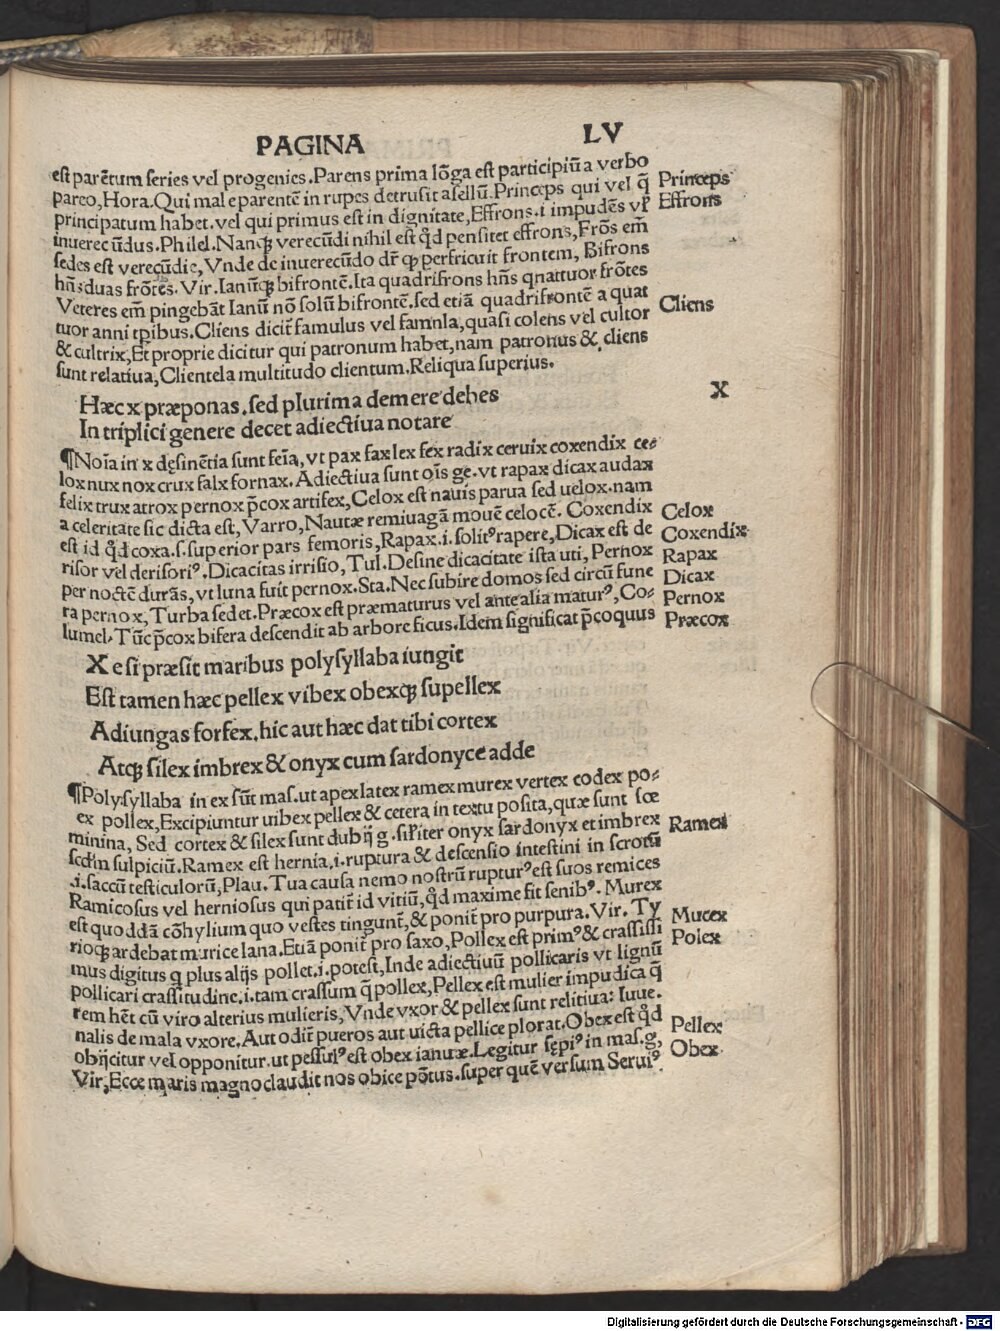 PAGINA LV
est parētum series vel progenies.Parens prima lōga est participiū a verbo
pareo,Hora.Qui male parentē in rupes detrusit asellū.Princeps qui vel q̄
principatum habet.vel qui primus est in dignitate,Effrons.i impudēs vl'
inuerecūdus.Philel.Nanqȝ verecūdi nihil est qd̄ pensitet effrons,Frōs em̄
sedes est verecūdie,Vnde de inuerecūdo dr̄ qȝ perfricuit frontem, Bifrons
hn̄s duas frōtes.Vir.Ianūqȝ bifrontē.Ita quadrifrons hn̄s qnattuor frōtes
Veteres em̄ pingebāt Ianū nō solū bifrontē.sed etiā quadrifrontē a quat
tuor anni tp̄ibus.Cliens dicit̄ famulus vel famnla,quasi colens vel cultor
& cultrix,Et proprie dicitur qui patronum habet,nam patronus & cliens
sunt relatiua,Clientela multitudo clientum.Reliqua superius.
Princeps
Effrons
Cliens
Hæc x præponas.sed plurima demere debes
In triplici genere decet adiectiua notare
X
¶Noīa in x desinētia sunt feīa,vt pax fax lex fex radix ceruix coxendix ce⸗
lox nux nox crux falx fornax.Adiectiua sunt oīs ge.vt rapax dicax audax
felix trux atrox pernox p̄cox artifex,Celox est nauis parua sed uelox.nam
a celeritate sic dicta est,Varro,Nautæ remiuagā mouē celocē. Coxendix
est id qd̄ coxa.s.superior pars femoris,Rapax.i.solitꝰ rapere,Dicax est de
risor vel derisoriꝰ.Dicacitas irrisio,Tul.Desine dicacitate ista uti, Pernox
per noctē durās,vt luna fuit pernox.Sta.Nec subire domos sed circū fune
ra pernox,Turba sedet.Præcox est præmaturus vel ante alia maturꝰ,Co⸗
lumel.Tūc p̄cox bifera descendit ab arbore ficus.Idem significat p̄coquus
Celox
Coxendix
Rapax
Dicax
Pernox
Præcox
X e si præsit maribus polysyllaba iungit
Est tamen hæc pellex vibex obexqȝ supellex
Adiungas forfex.hic aut hæc dat tibi cortex
Atqȝ silex imbrex & onyx cum sardonyce adde
¶Polysyllaba in ex sūt mas.ut apex latex ramex murex vertex codex po⸗
ex pollex,Excipiuntur uibex pellex & cetera in textu posita,quæ sunt fœ
minina, Sed cortex & silex sunt dubij g.sil'iter onyx sardonyx et imbrex
scd̄m sulpiciū.Ramex est hernia.i.ruptura & descensio intestini in scrotū
.i.saccū testiculorū,Plau.Tua causa nemo nostrū rupturꝰ est suos remices
Ramicosus vel herniosus qui patit̄ id vitiū,qd̄ maxime fit senibꝰ. Murex
est quoddā cōhylium quo vestes tingunt̄,& ponit̄ pro purpura.Vir. Ty
rioqȝ ardebat murice lana.Etiā ponit̄ pro saxo,Pollex est primꝰ & crassissi
mus digitus q plus alijs pollet.i.potest,Inde adiectiuū pollicaris vt lignū
pollicari crassitudine.i.tam crassum q̄ pollex,Pellex est mulier impudica q̄
rem hēt cū viro alterius mulieris,Vnde vxor & pellex sunt relitiua: Iuue.
nalis de mala vxore.Aut odit̄ pueros aut uicta pellice plorat.Obex est qd̄
obijcitur vel opponitur.ut pessulꝰ est obex ianuæ.Legitur sępiꝰ in mas.g,
Vir,Ecce maris magno claudit nos obice pōtus.super quē versum Seruiꝰ.
Ramex
Murex
Polex
Pellex
Obex
Digitalisierung gefördert durch die Deutsche Forschungsgemeinschaft - DFG